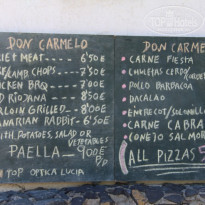 DON CARMELO
LET MEAT - 6'50€
LAMB CHOPS - 7'50€
CHICKEN BBQ - 7'00€
RIOJANA - 8'50€
GRILLED - 8'00€
CANARIAN RABBIT - 6'50€
WITH POTATOES, SALAD OR
VEGETABLES
PAELLA - 900€
TOP OPTICA LUCIA
DON CARMELO
CARNE FIESTA
CHULETAS CERDO
POLLO BARBACOA
BACALAO
ENTRECOT/SOLOMILLO
CARNE CABRA
CONEJO SALMOR
ALL PIZZAS